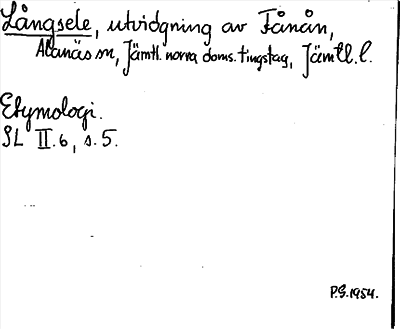 Långsele, utvidgning av Fånån,
Alanäs sn, Jämtl. norra doms. tingslag, Jämtl. l.
Etymologi.
SL II.6, s. 5.
P.G. 1954.